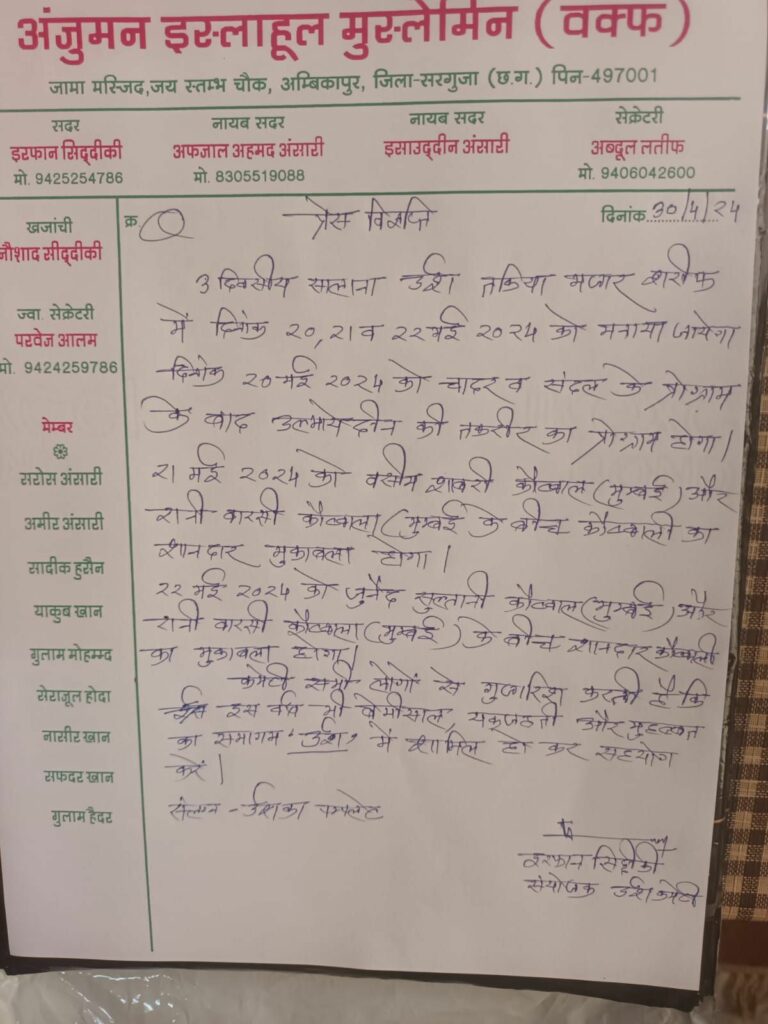 अंजुमन इस्लाहूल मुस्लेमिन (वक्फ)
जामा मस्जिद,जय स्तम्भ चौक, अम्बिकापुर, जिला-सरगुजा (छ.ग.) पिन-497001
सदर
इरफान सिद्दीकी
मो. 9425254786
नायब सदर
अफजाल अहमद अंसारी
मो. 8305519088
नायब सदर
इसाउद्दीन अंसारी
सेक्रेटरी
अब्दूल लतीफ
मो. 9406042600
खजांची
नौशाद सीद्दीकी
ज्वा. सेक्रेटरी
परवेज आलम
मो. 9424259786
मेम्बर
सरोस अंसारी
अमीर अंसारी
सादीक हुसैन
याकुब खान
गुलाम मोहम्मद
सेराजूल होदा
नासीर खान
सफदर खान
गुलाम हैदर
क्र.
प्रेस विज्ञप्ति
दिनांक 30/4/24
3 दिवसीय सलाना उर्श तकिया मजार शरीफ
में दिनांक 20, 21 व 22 मई 2024 को मनाया जायेगा
दिनांक 20 मई 2024 को चादर व संदल के प्रोग्राम
के बाद उल्मायेदीन की तकरीर का प्रोग्राम होगा।
21 मई 2024 को वसीम शाबरी कौव्वाल (मुम्बई) और
रानी वारसी कौव्वाला (मुम्बई के बीच कौव्वाली का
शानदार मुकाबला होगा।
22 मई 2024 को जुनैद सुल्तानी कौव्वाल (मुम्बई) और
रानी वारसी कौव्वाला (मुम्बई) के बीच शानदार कौव्वाली
का मुकाबला होगा।
कमेटी सभी लोगों से गुजारिश करती है कि
इस वर्ष भी बेमीसाल, यकजहती और मुहब्बत
का समागम 'उर्श' में शामिल हो कर सहयोग
करें।
संलग्न - उर्श का पम्पलेट
इरफान सिद्दीकी
संयोजक उर्श कमेटी